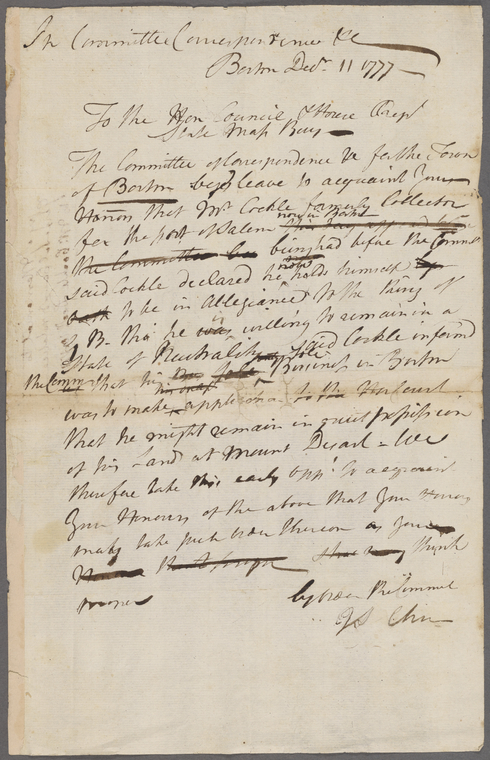 In Committee Correspondence &c
Boston Decr. 11 1777
To the Hon Council & House Repst
State Mass Bay
The Committee of Correspondence &c for the Town
of Boston beg leave to acquaint Your
Honors that Mr Cockle formerly Collector
for the port of Salem now in Boston
the Committee being had before the Comme
said Cockle declared he now holds himself
to be in Allegiance to the King of
G B- tho he was willing to remain in a
State of Neutrality said Cockle informd
the Comme that his sole Business in Boston
was to make application to the Honl Court
that he might remain in quiet possession
of his Land at Mount Desart - We
therefore take this early oppy. to acquaint
Your Honours of the above that Your Honors
may take such order thereon as you
may think
proper
by order the Commee